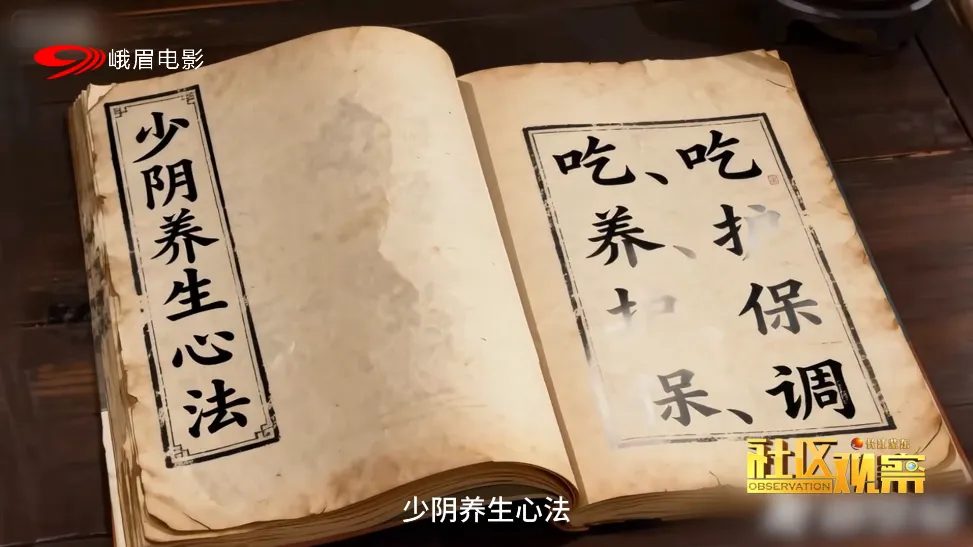 峨眉电影
少阴养生心法
吃、吃
养、护
保
呆、调
社区观察
OBSERVATION
少阴养生心法